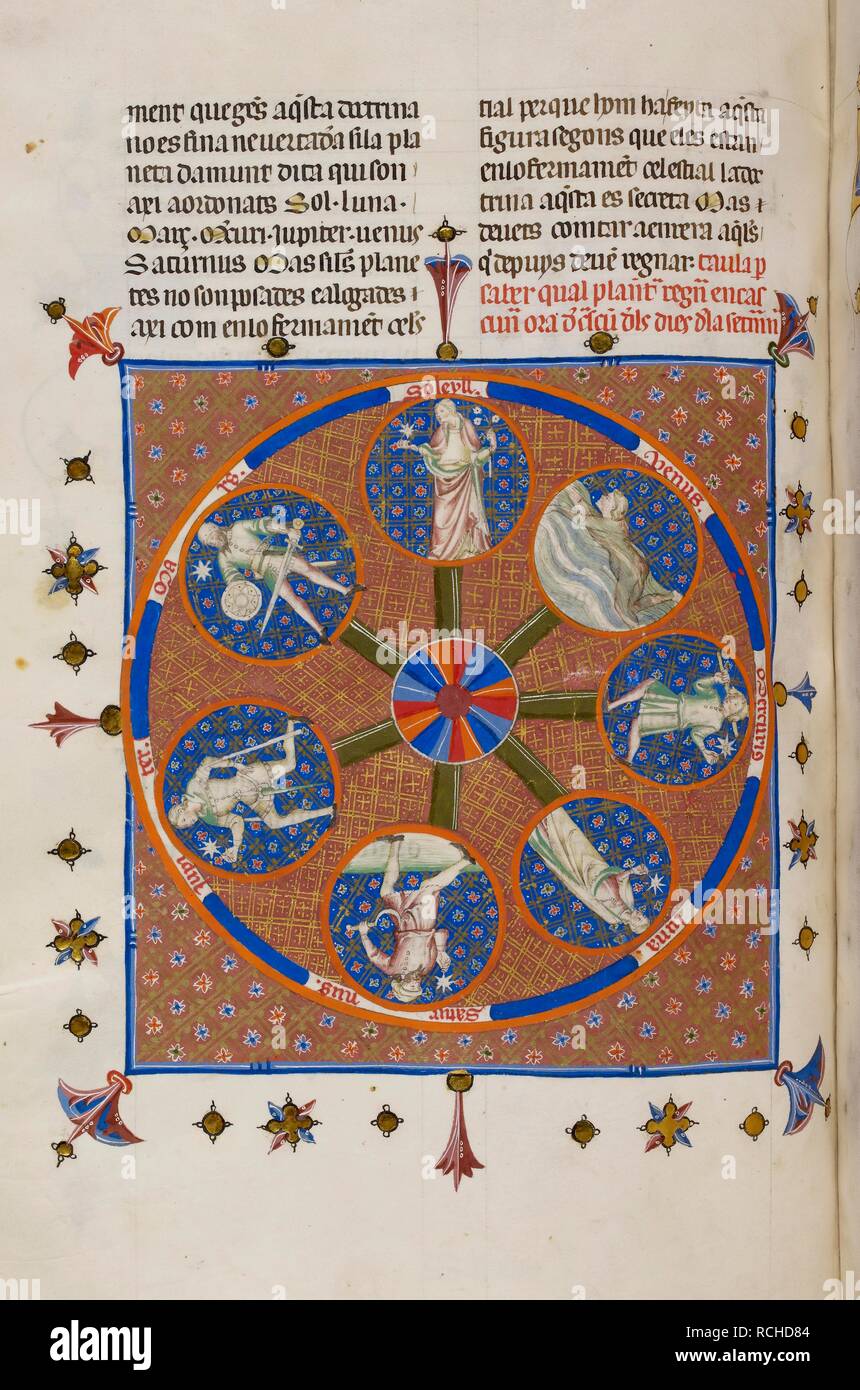 ment que ges aqsta dotrina
no es fina ne vertadera si la pla
neta damunt dita qui son
axi aordonats Sol · luna ·
Març · Mercuri · Jupiter · uenus
Saturnus Mas si les plane
tes no son posades e alogades
axi com en lo fermament celes
tial per que hom ha feyta aqsta
figura segons que eles estan
en lo fermament celestial la doc
trina aqsta es secreta Mas
deuets comtar a enrera aqls
q depuys deuen regnar · taula p
saber qual planet regn en cas
cun ora d cscun dls dies dla setm
Soleyll.
Venus
Mercurius
luna
Satur
nus.
Jupi
ter.
Ma
rs.
alamy
Image ID: RCHD84
www.alamy.com